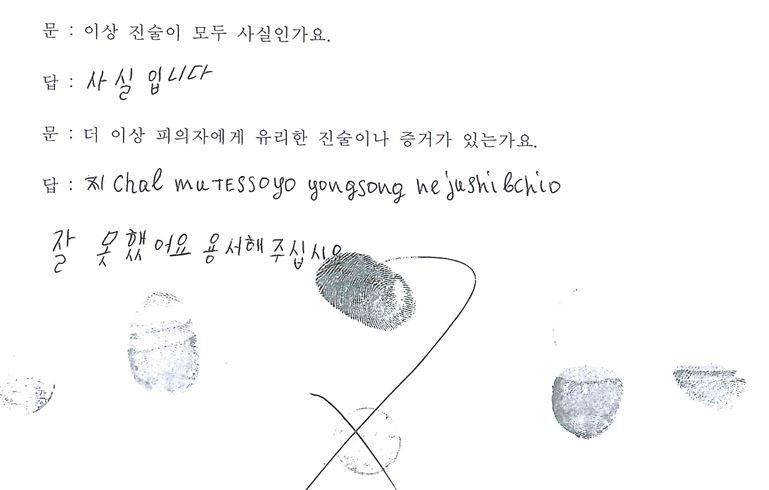 문 : 이상 진술이 모두 사실인가요.
답 : 사실 입니다
문 : 더 이상 피의자에게 유리한 진술이나 증거가 있는가요.
답 : 제 chal muTESSOYO yongsong hejushibchio
잘 못했어요 용서해주십시요